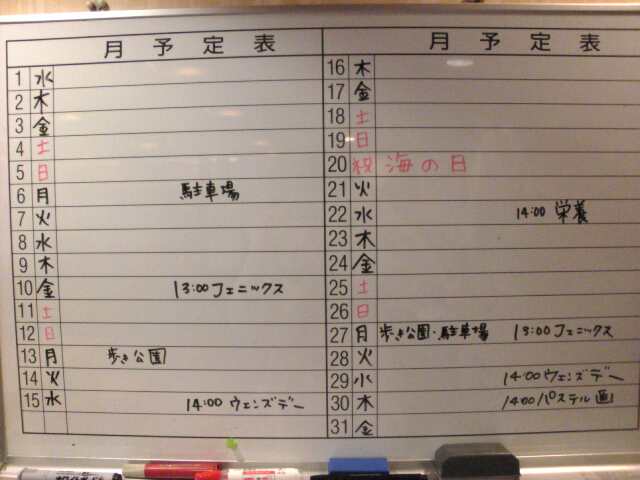 月予定表
1 水
2 木
3 金
4 土
5 日
6 月 駐車場
7 火
8 水
9 木
10 金 13:00 フェニックス
11 土
12 日
13 月 歩き公園
14 火
15 水 14:00 ウェンズデー
月予定表
16 木
17 金
18 土
19 日
20 祝 海の日
21 火
22 水 14:00 栄養
23 木
24 金
25 土
26 日
27 月 歩き公園・駐車場 13:00 フェニックス
28 火
29 水 14:00 ウェンズデー
30 木 14:00 パステル画
31 金